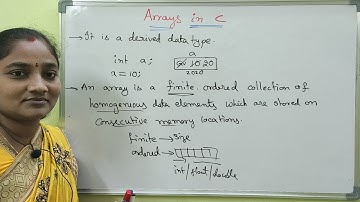 Arrays in C
→ It is a derived data type.
int a;
a
10 20
a=10;
2020
→ An array is a finite ordered collection of
homogenous data elements which are stored on
consecutive memory locations.
finite → size
ordered →
int/float/double